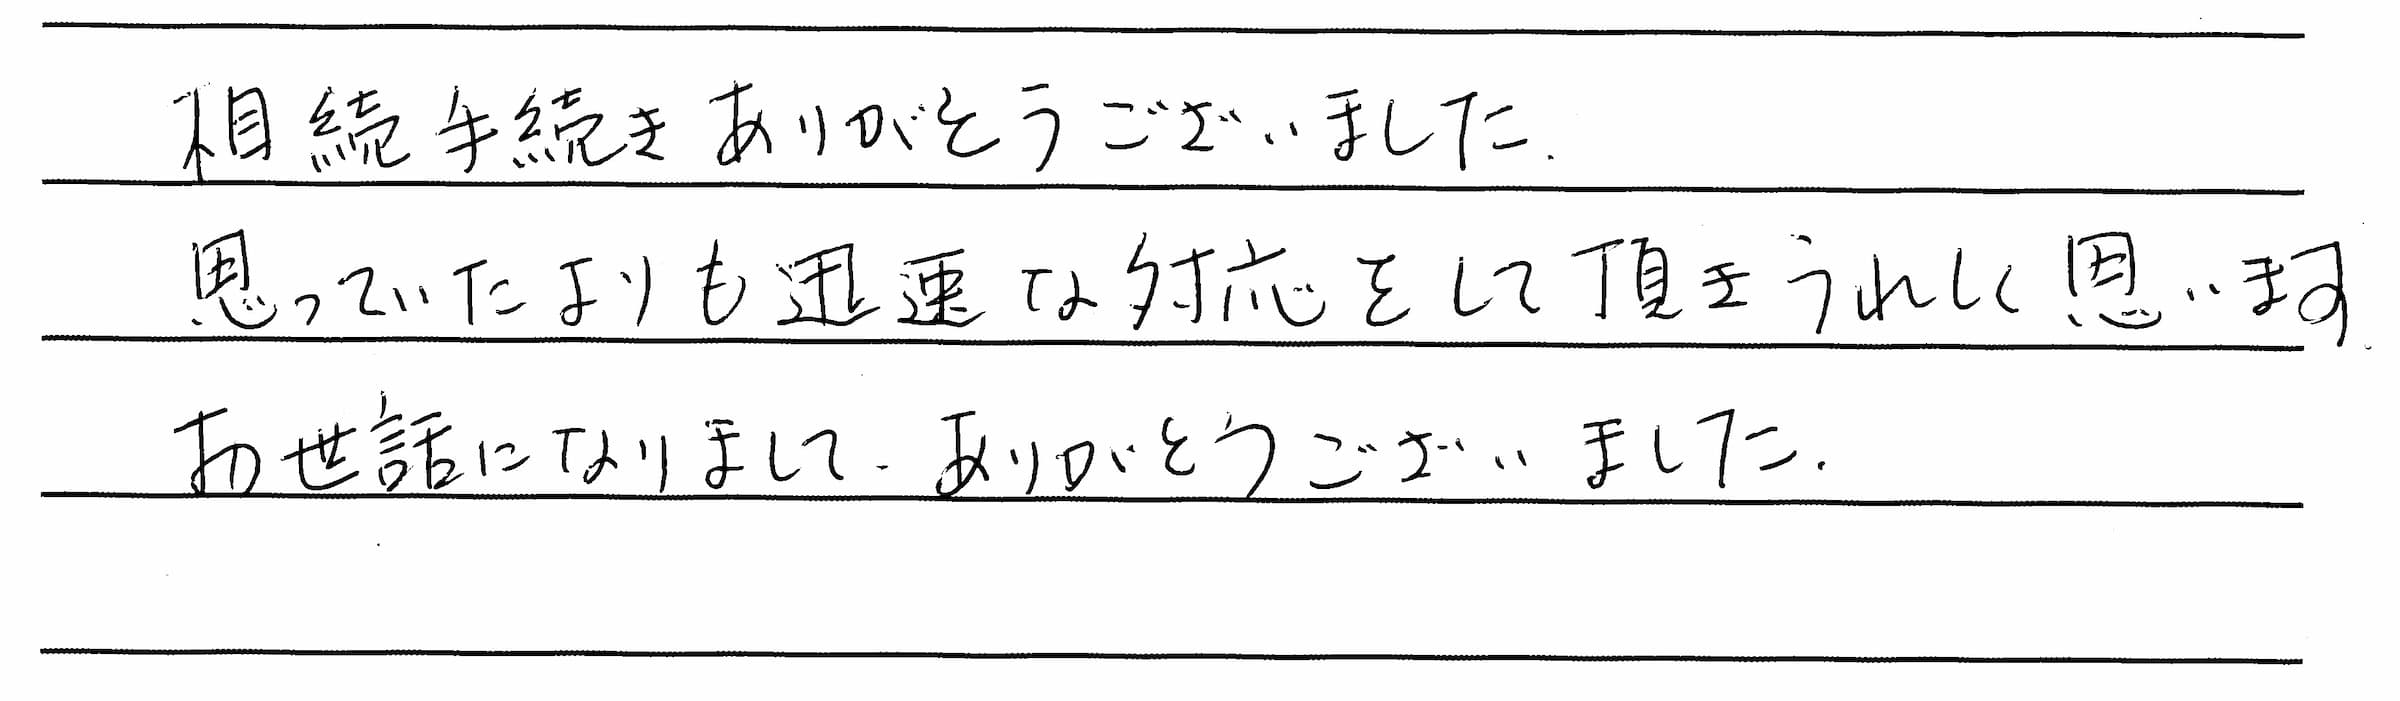 相続手続きありがとうございました.
思っていたよりも迅速な対応をして頂きうれしく思います.
お世話になりまして.ありがとうございました.